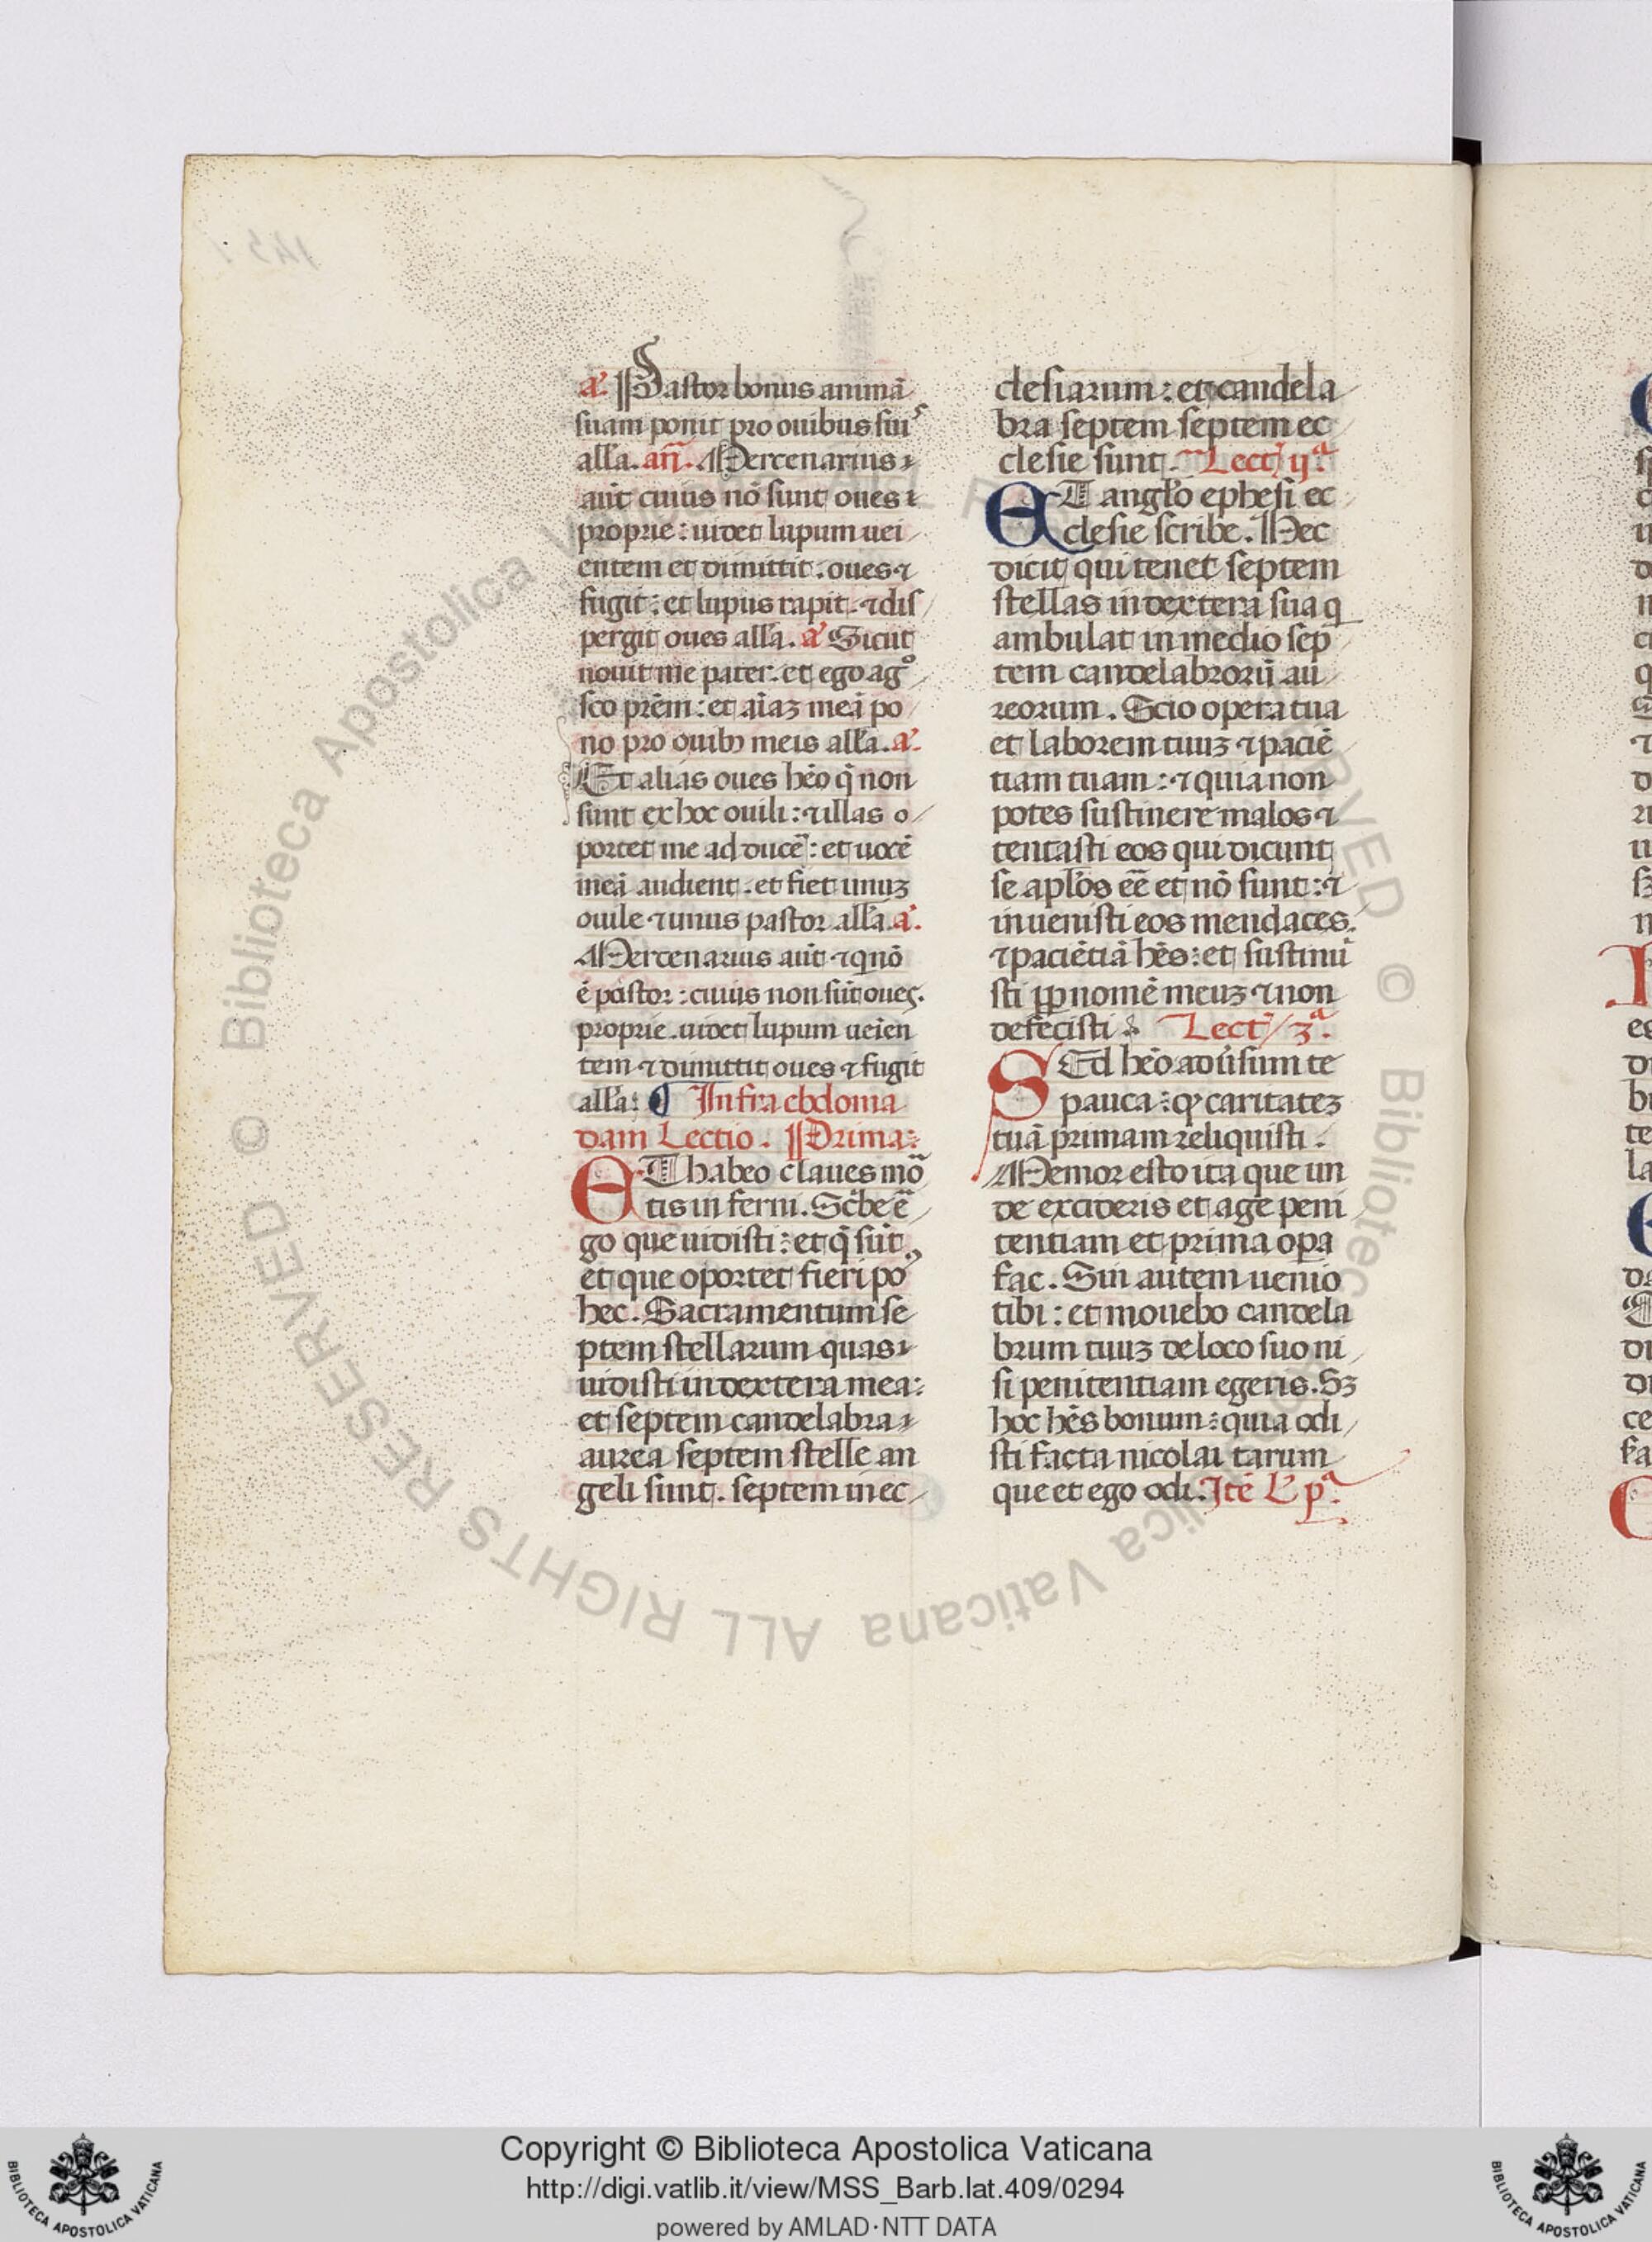 a᷑. Pastor bonus animā
suam ponit pro ouibus suis
alľa. añ. Mercenarius
aūt cuius nō sunt oues
proprie: uidet lupum ueni
entem et dimittit. oues ⁊
fugit: et lupus rapit. ⁊ dis
pergit oues alľa. a᷑ Sicut
nouit me pater. et ego agº
sco prēm: et aīaꝫ meā po
no pro ouibꝫ meis alľa. a᷑.
Et alias oues hēo q̄ non
sunt ex hoc ouili: ⁊ illas o
portet me adducē: et uocē
meā audient. et fiet unuꝫ
ouile ⁊ unus pastor alľa. a᷑.
Mercenarius aūt ⁊ q nō
ē pastor: cuius non sūt oues.
proprie. uidet lupum ueien
tem ⁊ dimittit oues ⁊ fugit
alľa: ¶ Infra ebdoma
dam Lectio. Prima:
ET habeo claues mō
tis inferni. Scͥbe ē
go que uidisti: et q̄ sūt
et que oportet fieri pꝰ
hec. Sacramentum se
ptem stellarum quas
uidisti in dextera mea:
et septem candelabra
aurea septem stelle an
geli sunt. septem in ec
clesiarum: et candela
bra septem septem ec
clesie sunt. Lect ijª
ET angľo ephesi ec
clesie scribe. Hec
dicit qui tenet septem
stellas in dextera sua q
ambulat in medio sep
tem candelabrorū au
reorum. Scio opera tua
et laborem tuuꝫ ⁊ paciē
tiam tuam: ⁊ quia non
potes sustinere malos ⁊
tentasti eos qui dicunt
se apľos eē et nō sunt: ⁊
inuenisti eos mendaces.
⁊ paciētiā hēs: et sustinui
sti ꝓp nomē meuꝫ ⁊ non
defecisti. Lect 3ª.
SEd hēo adūsum te
pauca: qꝫ caritateꝫ
tuā primam reliquisti.
Memor esto ita que un
de excideris et age peni
tentiam et prima opa
fac. Sin autem uenio
tibi: et mouebo candela
brum tuuꝫ de loco suo ni
si penitentiam egeris. Sꝫ
hoc hēs bonum: quia odi
sti facta nicolai tarum
que et ego odi. Itē L' pª.
Copyright © Biblioteca Apostolica Vaticana
http://digi.vatlib.it/view/MSS_Barb.lat.409/0294
powered by AMLAD·NTT DATA